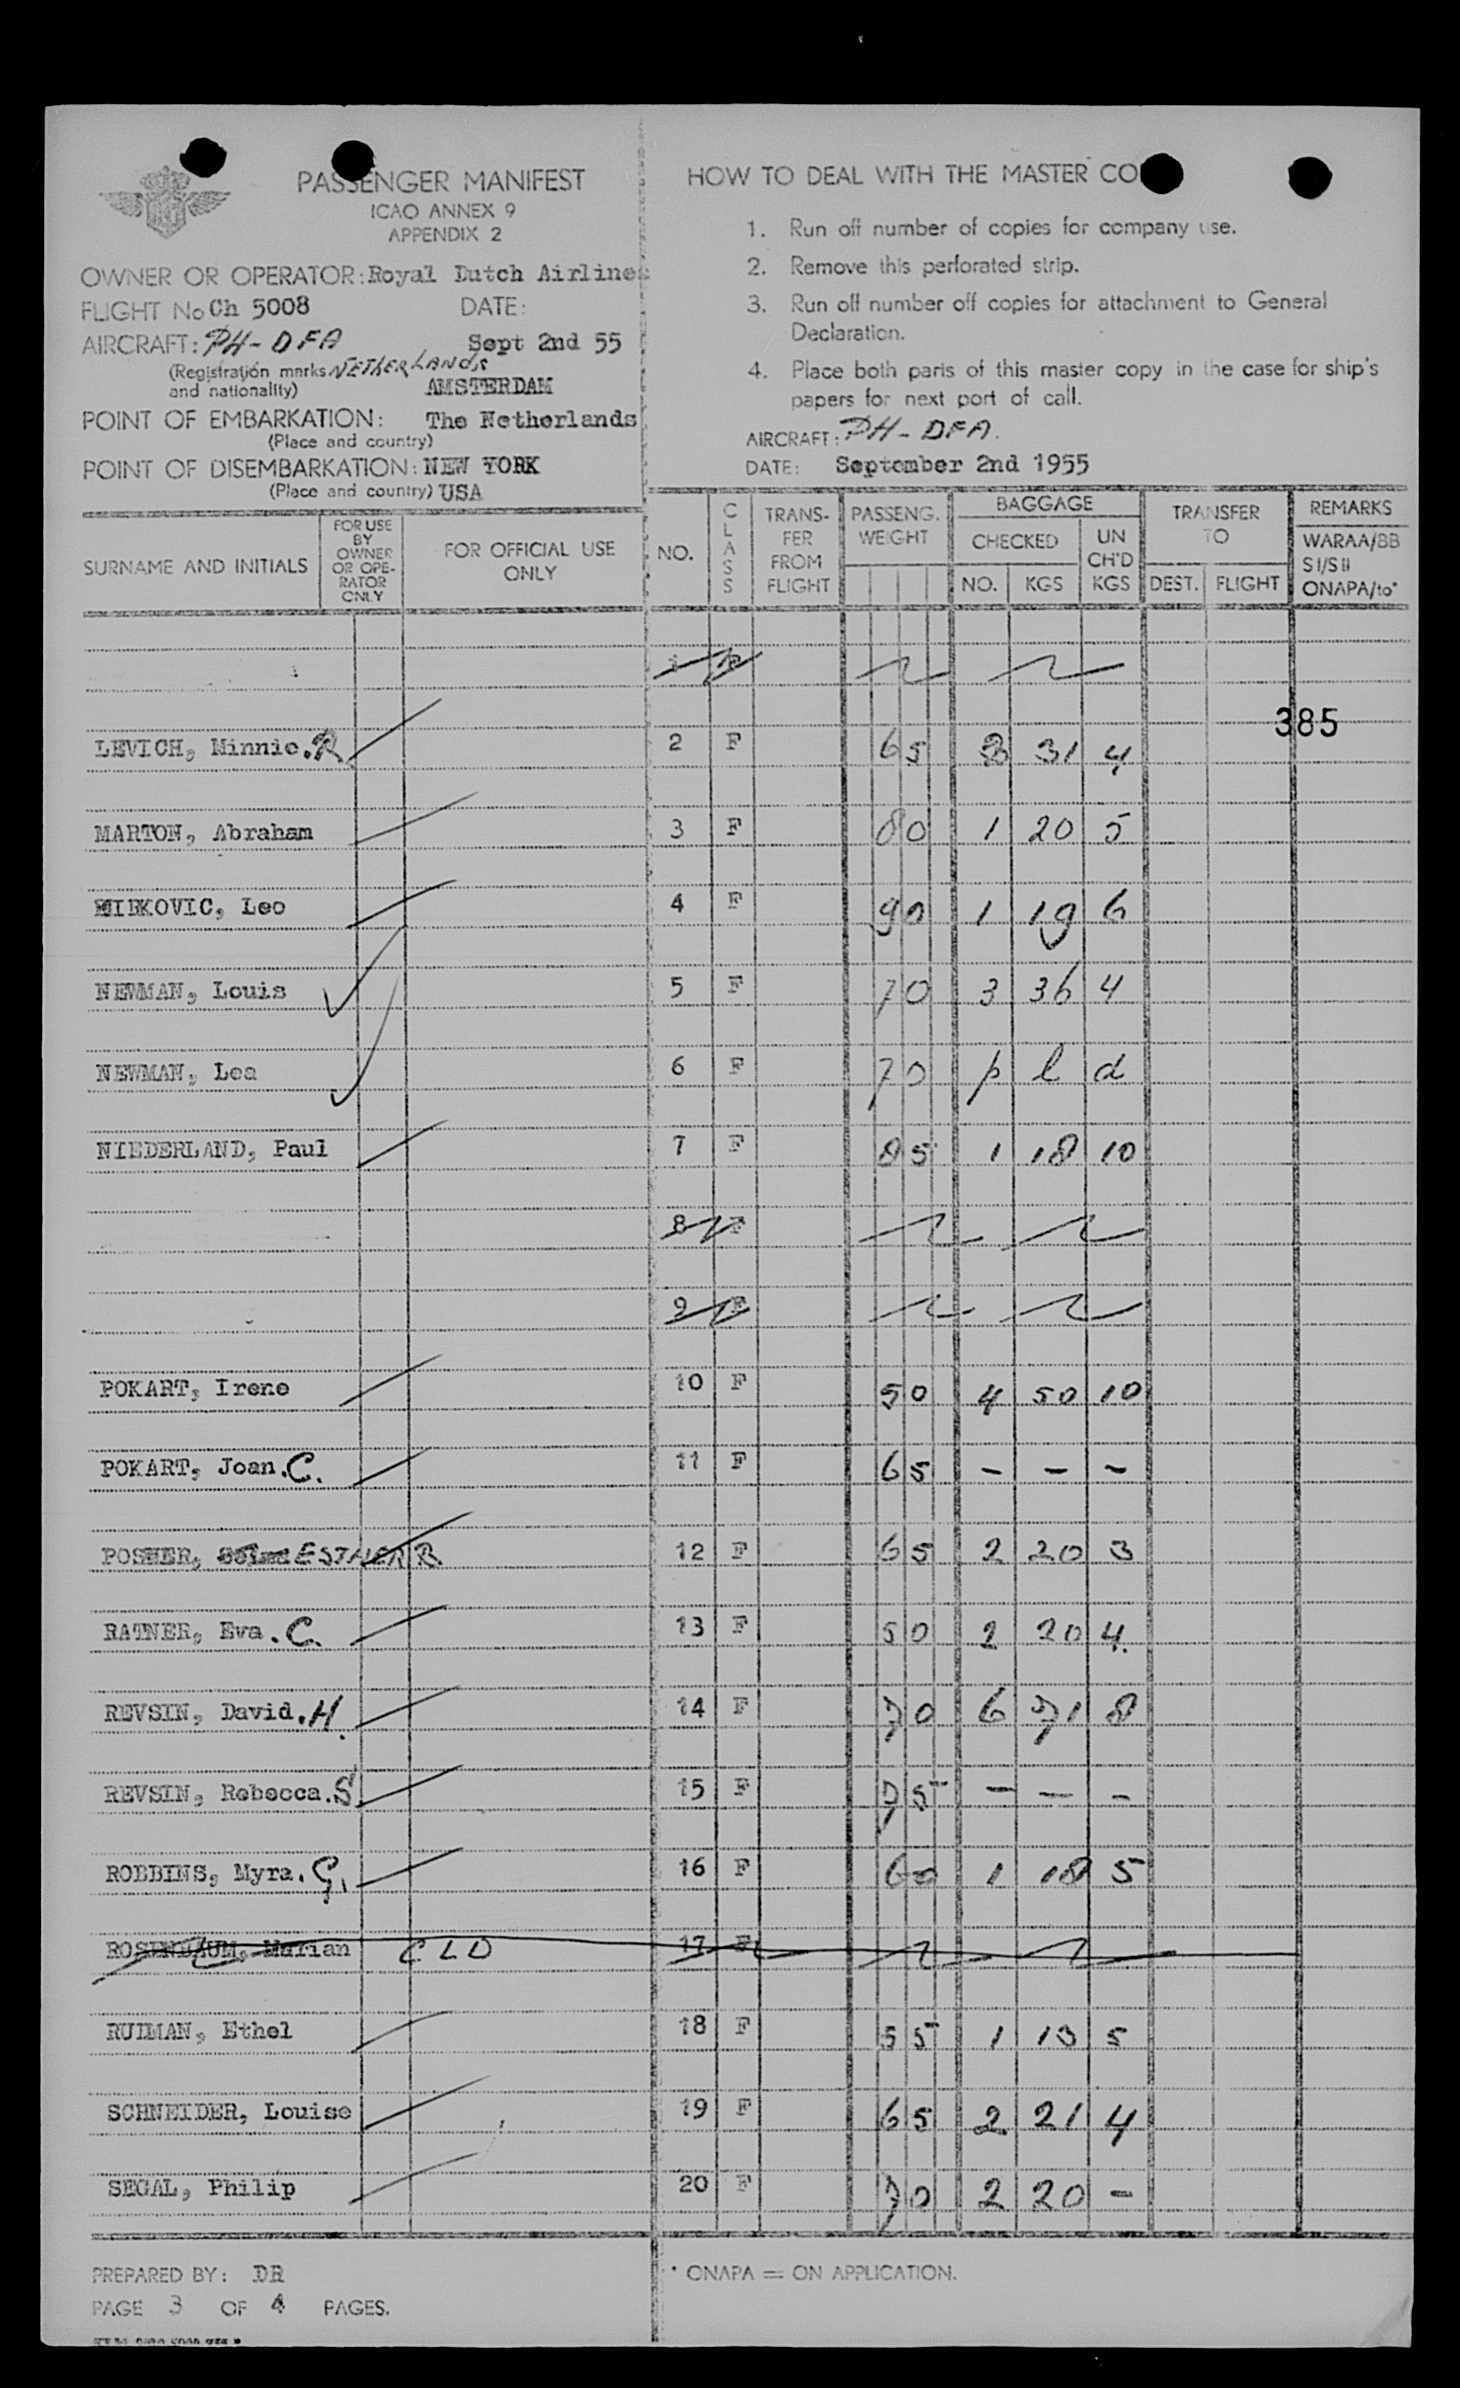 PASSENGER MANIFEST
ICAO ANNEX 9
APPENDIX 2
OWNER OR OPERATOR: Royal Dutch Airlines
FLIGHT No Ch 5008 DATE:
AIRCRAFT: PH-DFA Sept 2nd 55
(Registration marks NETHERLANDS
and nationality) AMSTERDAM
POINT OF EMBARKATION: The Netherlands
(Place and country)
POINT OF DISEMBARKATION: NEW YORK
(Place and country) USA
HOW TO DEAL WITH THE MASTER CO
1. Run off number of copies for company use.
2. Remove this perforated strip.
3. Run off number off copies for attachment to General
Declaration.
4. Place both parts of this master copy in the case for ship's
papers for next port of call.
AIRCRAFT: PH-DFA.
DATE: September 2nd 1955
SURNAME AND INITIALS
FOR USE
BY
OWNER
OR OPE-
RATOR
ONLY
FOR OFFICIAL USE
ONLY
NO.
CLASS
TRANS-
FER
FROM
FLIGHT
PASSENG.
WEIGHT
BAGGAGE
CHECKED
NO. KGS
UN
CH'D
KGS
TRANSFER
TO
DEST. FLIGHT
REMARKS
WARAA/BB
SI/SII
ONAPA/to*
1 F
385
LEVICH, Minnie.R 2 F 65 3 31 4
MARTON, Abraham 3 F 80 1 20 5
Leo 4 F 90 1 19 6
NEWMAN, Louis 5 F 70 3 36 4
NEWMAN, Lea 6 F 70 p l d
NIEDERLAND, Paul 7 F 85 1 18 10
8 F
9 F
POKART, Irene 10 F 50 4 50 10
POKART, Joan.C. 11 F 65 - - -
POSNER, ESTHER R 12 F 65 2 20 3
RATNER, Eva.C. 13 F 50 2 20 4.
REVSIN, David.H. 14 F 70 6 71 8
REVSIN, Rebecca.S 15 F 75 - - -
ROBBINS, Myra.G. 16 F 60 1 18 5
ROSENBAUM, Marian CLD 17 F
RUIMAN, Ethel 18 F 55 1 13 5
SCHNEIDER, Louise 19 F 65 2 21 4
SEGAL, Philip 20 F 70 2 20 -
PREPARED BY: DR
PAGE 3 OF 4 PAGES.
* ONAPA = ON APPLICATION.